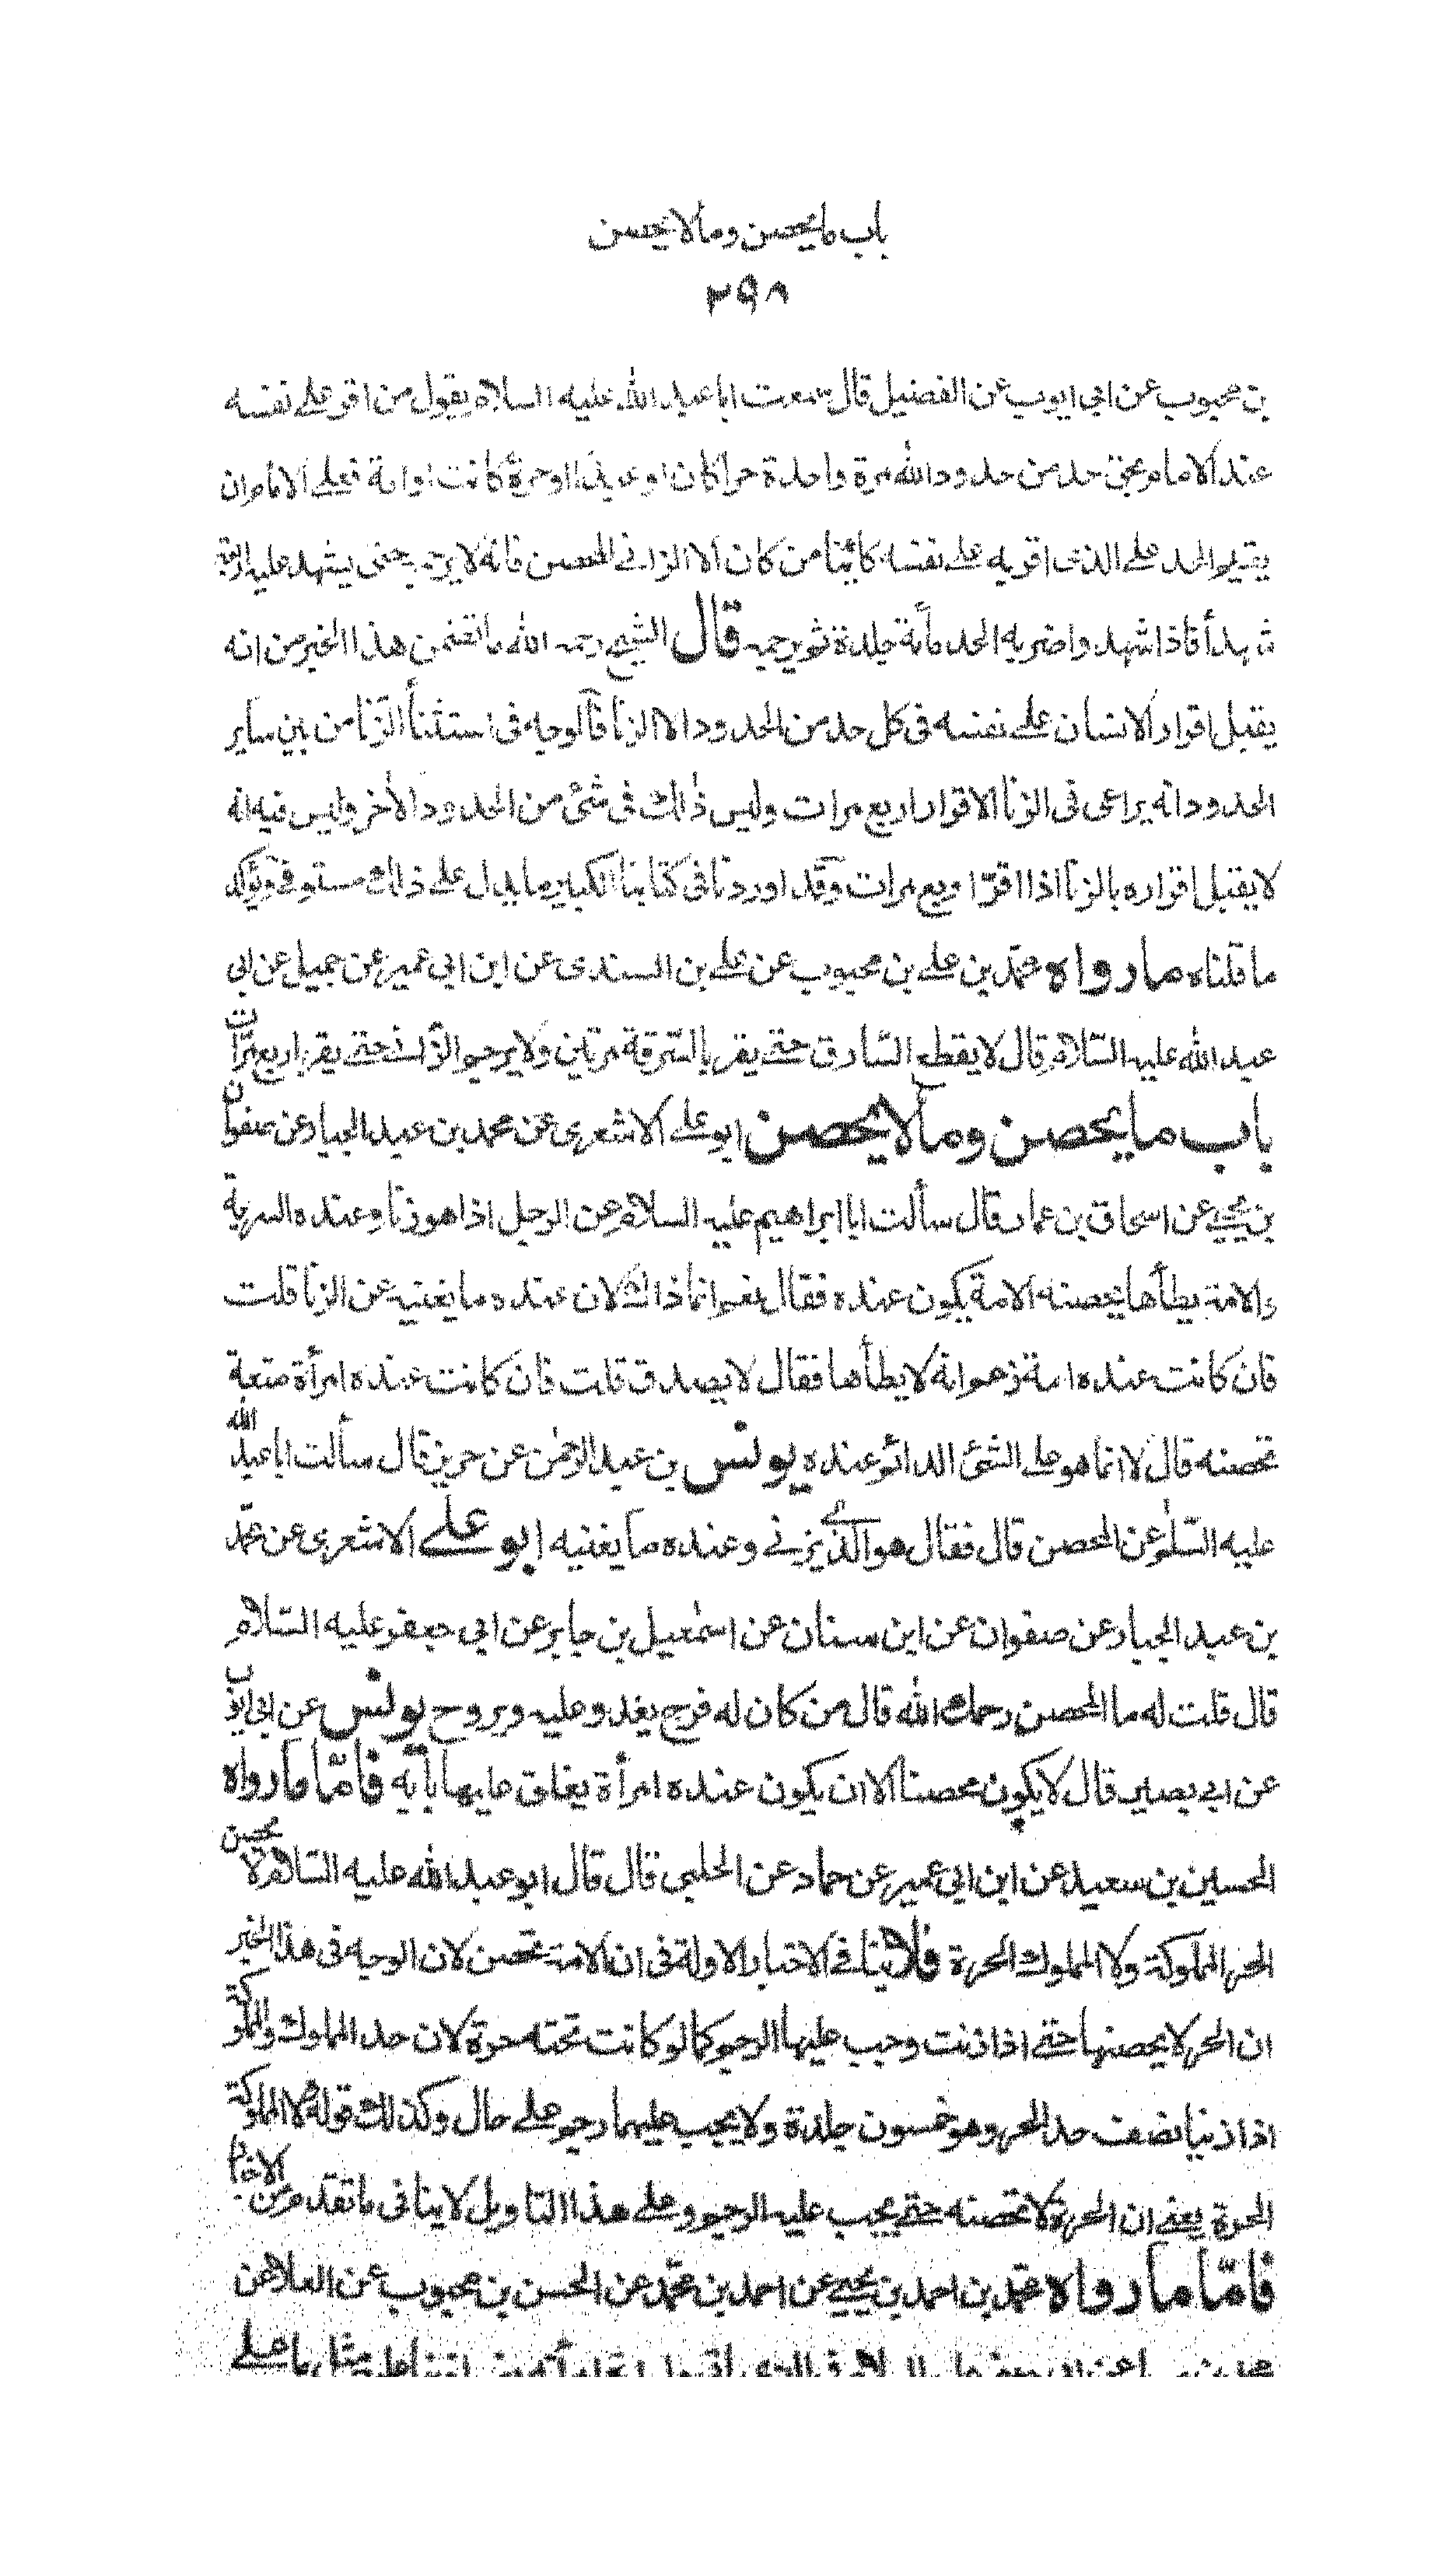 باب ما يحصن وما لا يحصن
٢٩٨
بن محبوب عن ابي ايوب عن الفضيل قال سمعت ابا عبد الله عليه السلام يقول من اقر على نفسه
عند الامام بحق حد من حدود الله مرة واحدة حرا كان او عبدا او حرة كانت او امة فعلى الامام ان
يقيم الحد على الذى اقر به على نفسه كائنا من كان الا الزانى المحصن فانه لا يرجمه حتى يشهد عليه اربعة
شهدأ فاذا شهدوا ضربه الحد مأئة جلدة ثم يرجمه قال الشيخ رحمه الله ما تضمن هذا الخبر من انه
يقبل اقرار الانسان على نفسه فى كل حد من الحدود الا الزنا فالوجه فى استثنأ الزنا من بين ساير
الحدود انه يراعى فى الزنا الاقرار اربع مرات وليس ذٰلك فى شئ من الحدود الاخر وليس فيه انه
لا يقبل اقراره بالزنا اذا اقرّ اربع مرات وقد اوردنا فى كتابنا الكبير ما يدل على ذلك مستوفى ويؤكد
ما قلناه ما رواه محمّد بن على بن محبوب عن على بن السندى عن ابن ابي عمير عن جميل عن ابى
عبد الله عليه السّلام قال لا يقطع السّارق حتى يقر بالسّرقة مرتين ولا يرجم الزّانى حتى يقر اربع مرّات
باب ما يحصن وما لا يحصن ابو على الاشعرى عن محمد بن عبد الجبار عن صفوان
بن يحيى عن اسحاق بن عمار قال سألت ابا ابراهيم عليه السلام عن الرجل اذا هو زنا وعنده السرية
والامة يطأها يحصنه الامة يكون عنده فقال نعم انما ذاك لان عنده ما يغنيه عن الزنا قلت
فان كانت عنده امة زعم انه لا يطأها فقال لا يصدق قلت فان كانت عنده امرأة متعة
تحصنه قال لا انما هو على الشئ الدائم عنده يونس بن عبد الرحمٰن عن حريز قال سألت ابا عبد الله
عليه السّلٰم عن المحصن قال فقال هو الذى يزنى وعنده ما يغنيه ابو على الاشعرى عن محمّد
بن عبد الجبار عن صفوان عن ابن سنان عن اسمٰعيل بن جابر عن ابي جعفر عليه السّلام
قال قلت له ما المحصن رحمك الله قال من كان له فرج يغدو عليه ويروح يونس عن ابى ايوب
عن ابي بصير قال لا يكون محصنا الا ان يكون عنده امرأة يغلق عليها بابه فامّا ما رواه
الحسين بن سعيد عن ابن ابي عمير عن حماد عن الحلبى قال قال ابو عبد الله عليه السّلام لا يحصن
الحر المملوكة ولا المملوك الحرة فلا ينافى الاخبار الاولة فى ان الامة تحصن لان الوجه فى هذا الخبر
ان الحر لا يحصنها حتى اذا زنت وجب عليها الرجم كما لو كانت تحته حرة لان حد المملوك والمملوكة
اذا زنيا نصف حد الحر وهو خمسون جلدة ولا يجب عليهما رجم على حال وكذلك قوله ولا المملوكة
الحرة يعنى ان الحرة لا تحصنه حتى يجب عليه الرجم وعلى هذا التاويل لا ينافى ما تقدم من الاخبار
فامّا ما رواه محمّد بن احمد بن يحيى عن احمد بن محمّد عن الحسن بن محبوب عن العلا عن